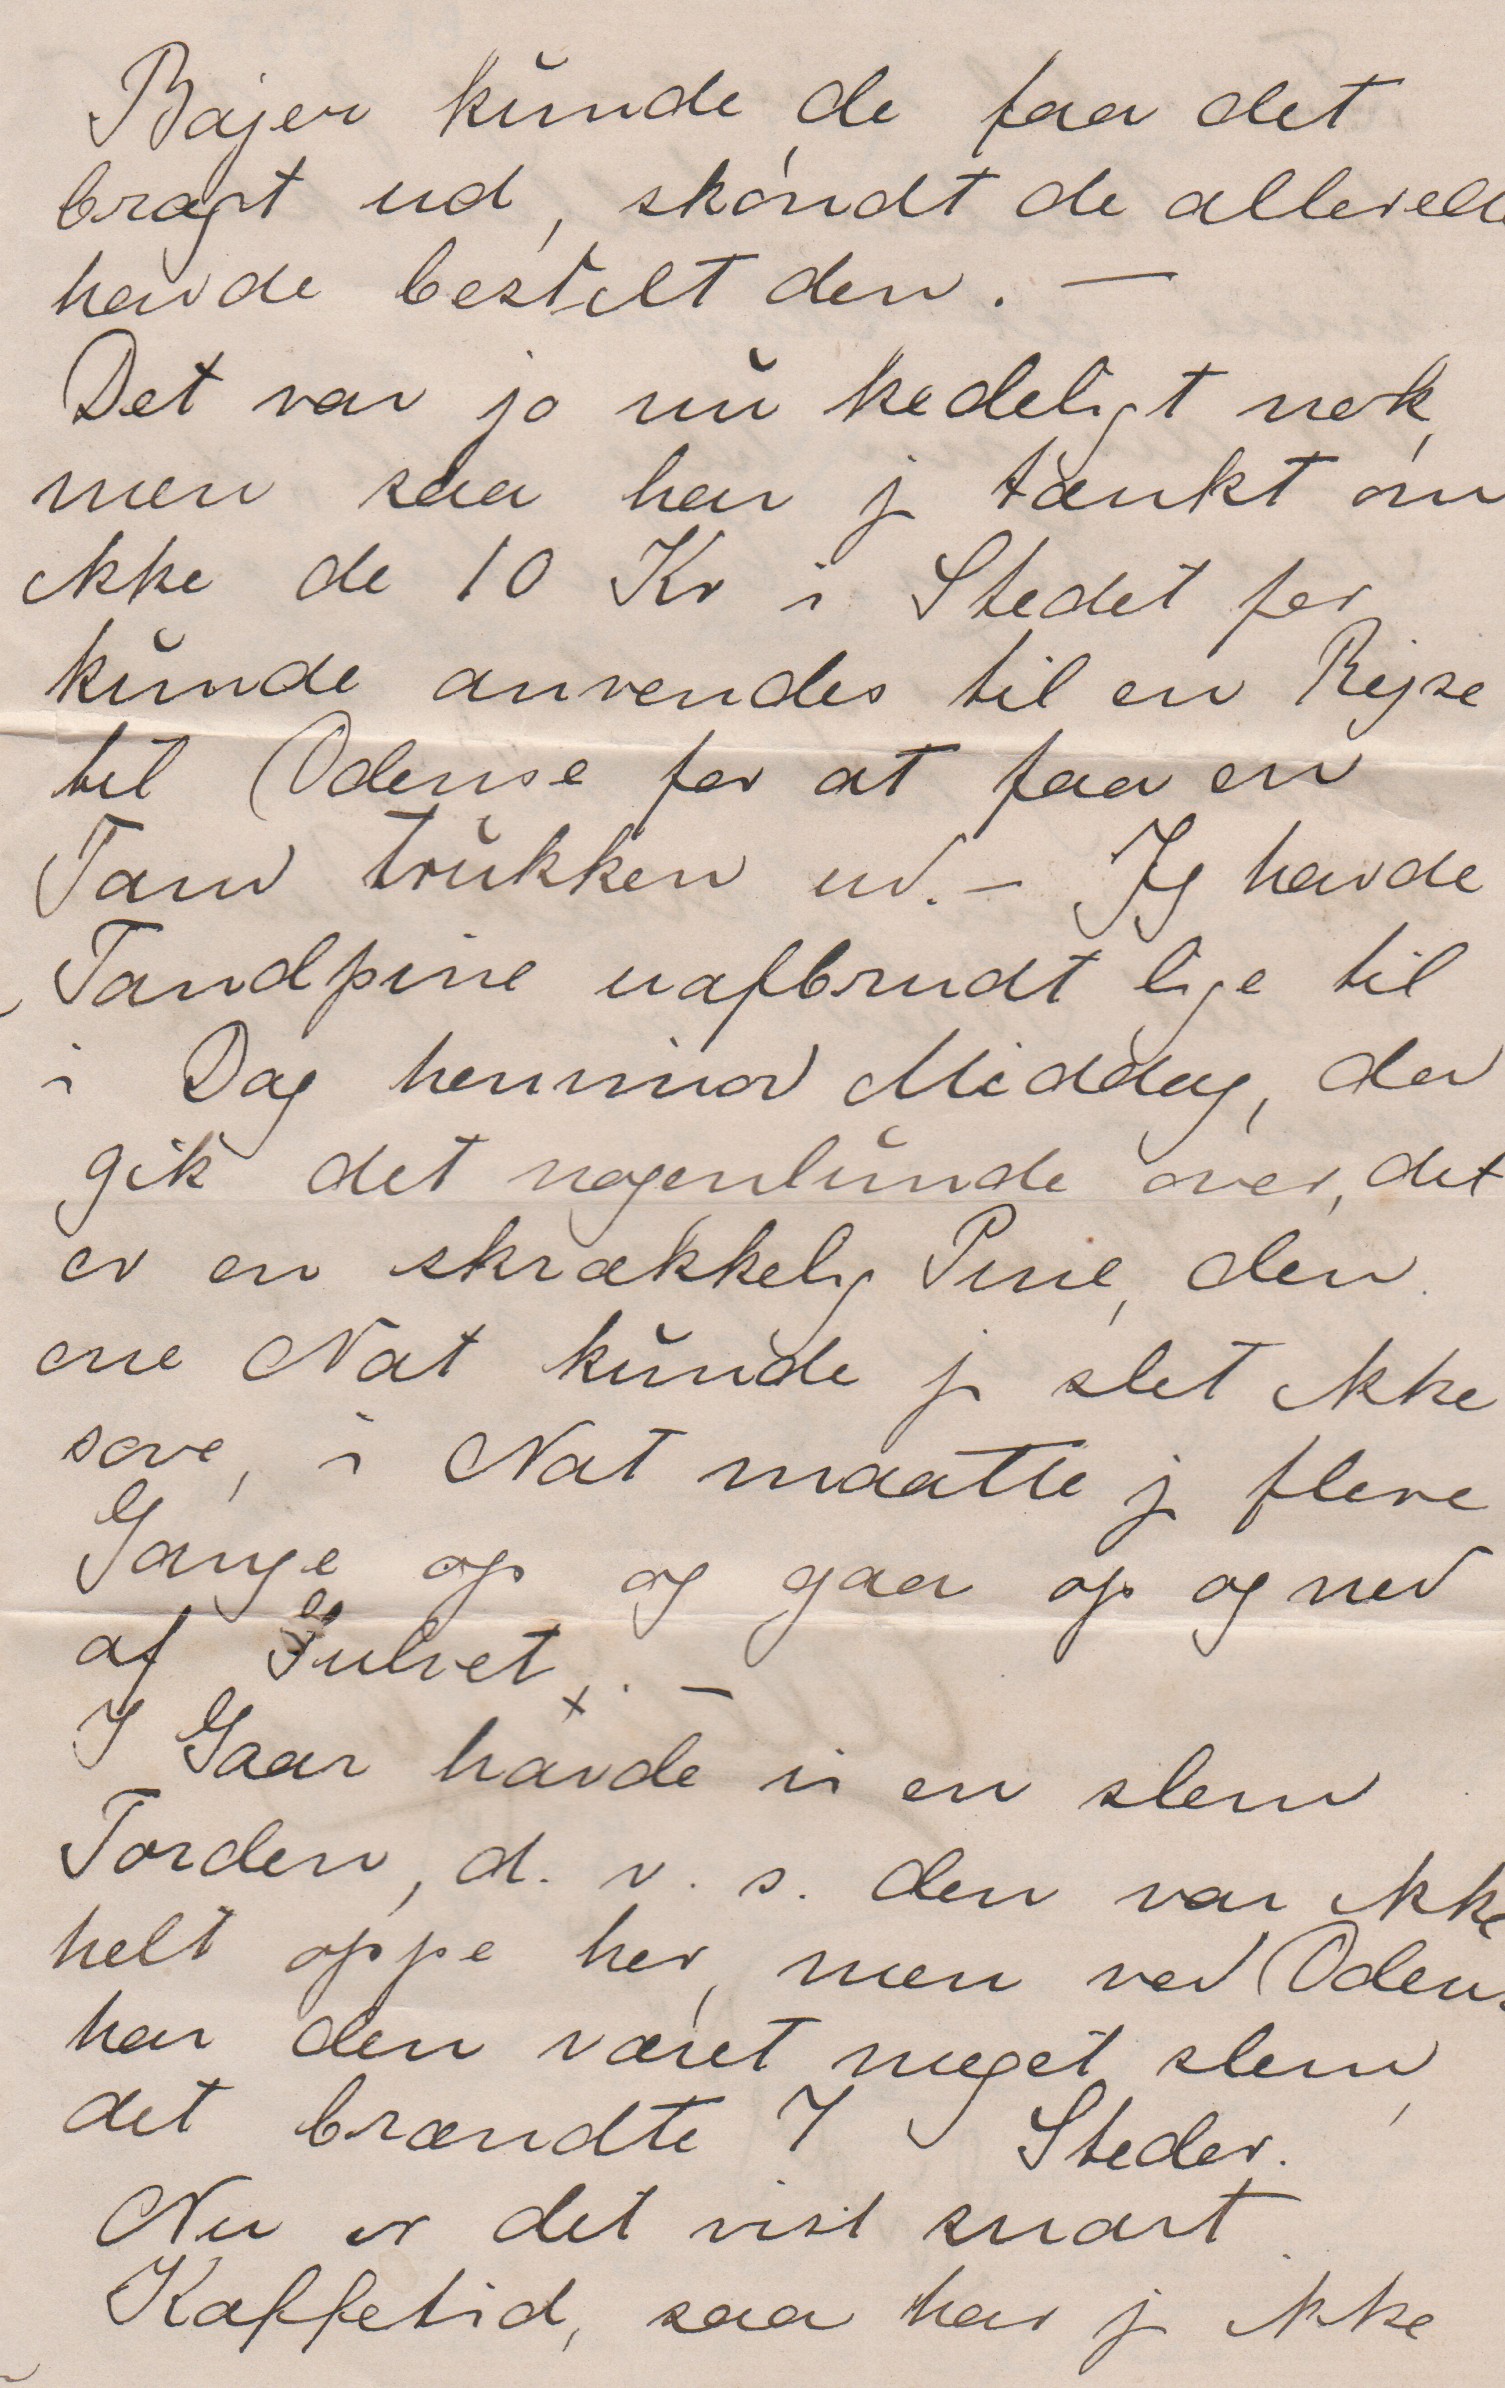 Bajer kunde de faa det
bragt ud, skøndt de allerede
havde bestilt den. —
Det var jo nu kedeligt nok,
men saa har j tænkt om
ikke de 10 Kr i Stedet for
kunde anvendes til en Rejse
til Odense for at faa en
Tand trukken ud. – Jg havde
Tandpine uafbrudt lige til
i Dag henimod Middag, da
gik det nogenlunde over, det
er en skrækkelig Pine, den
ene Nat kunde j slet ikke
sove, i Nat maatte j flere
Gange op og gaa op og ned
af Gulvet x. –
I Gaar havde vi en slem
Torden, d. v. s. den var ikke
helt oppe her, men ved Odens
har den været meget slem,
det brændte 7 Steder.
Nu er det vist snart
Kaffetid, saa har j ikke